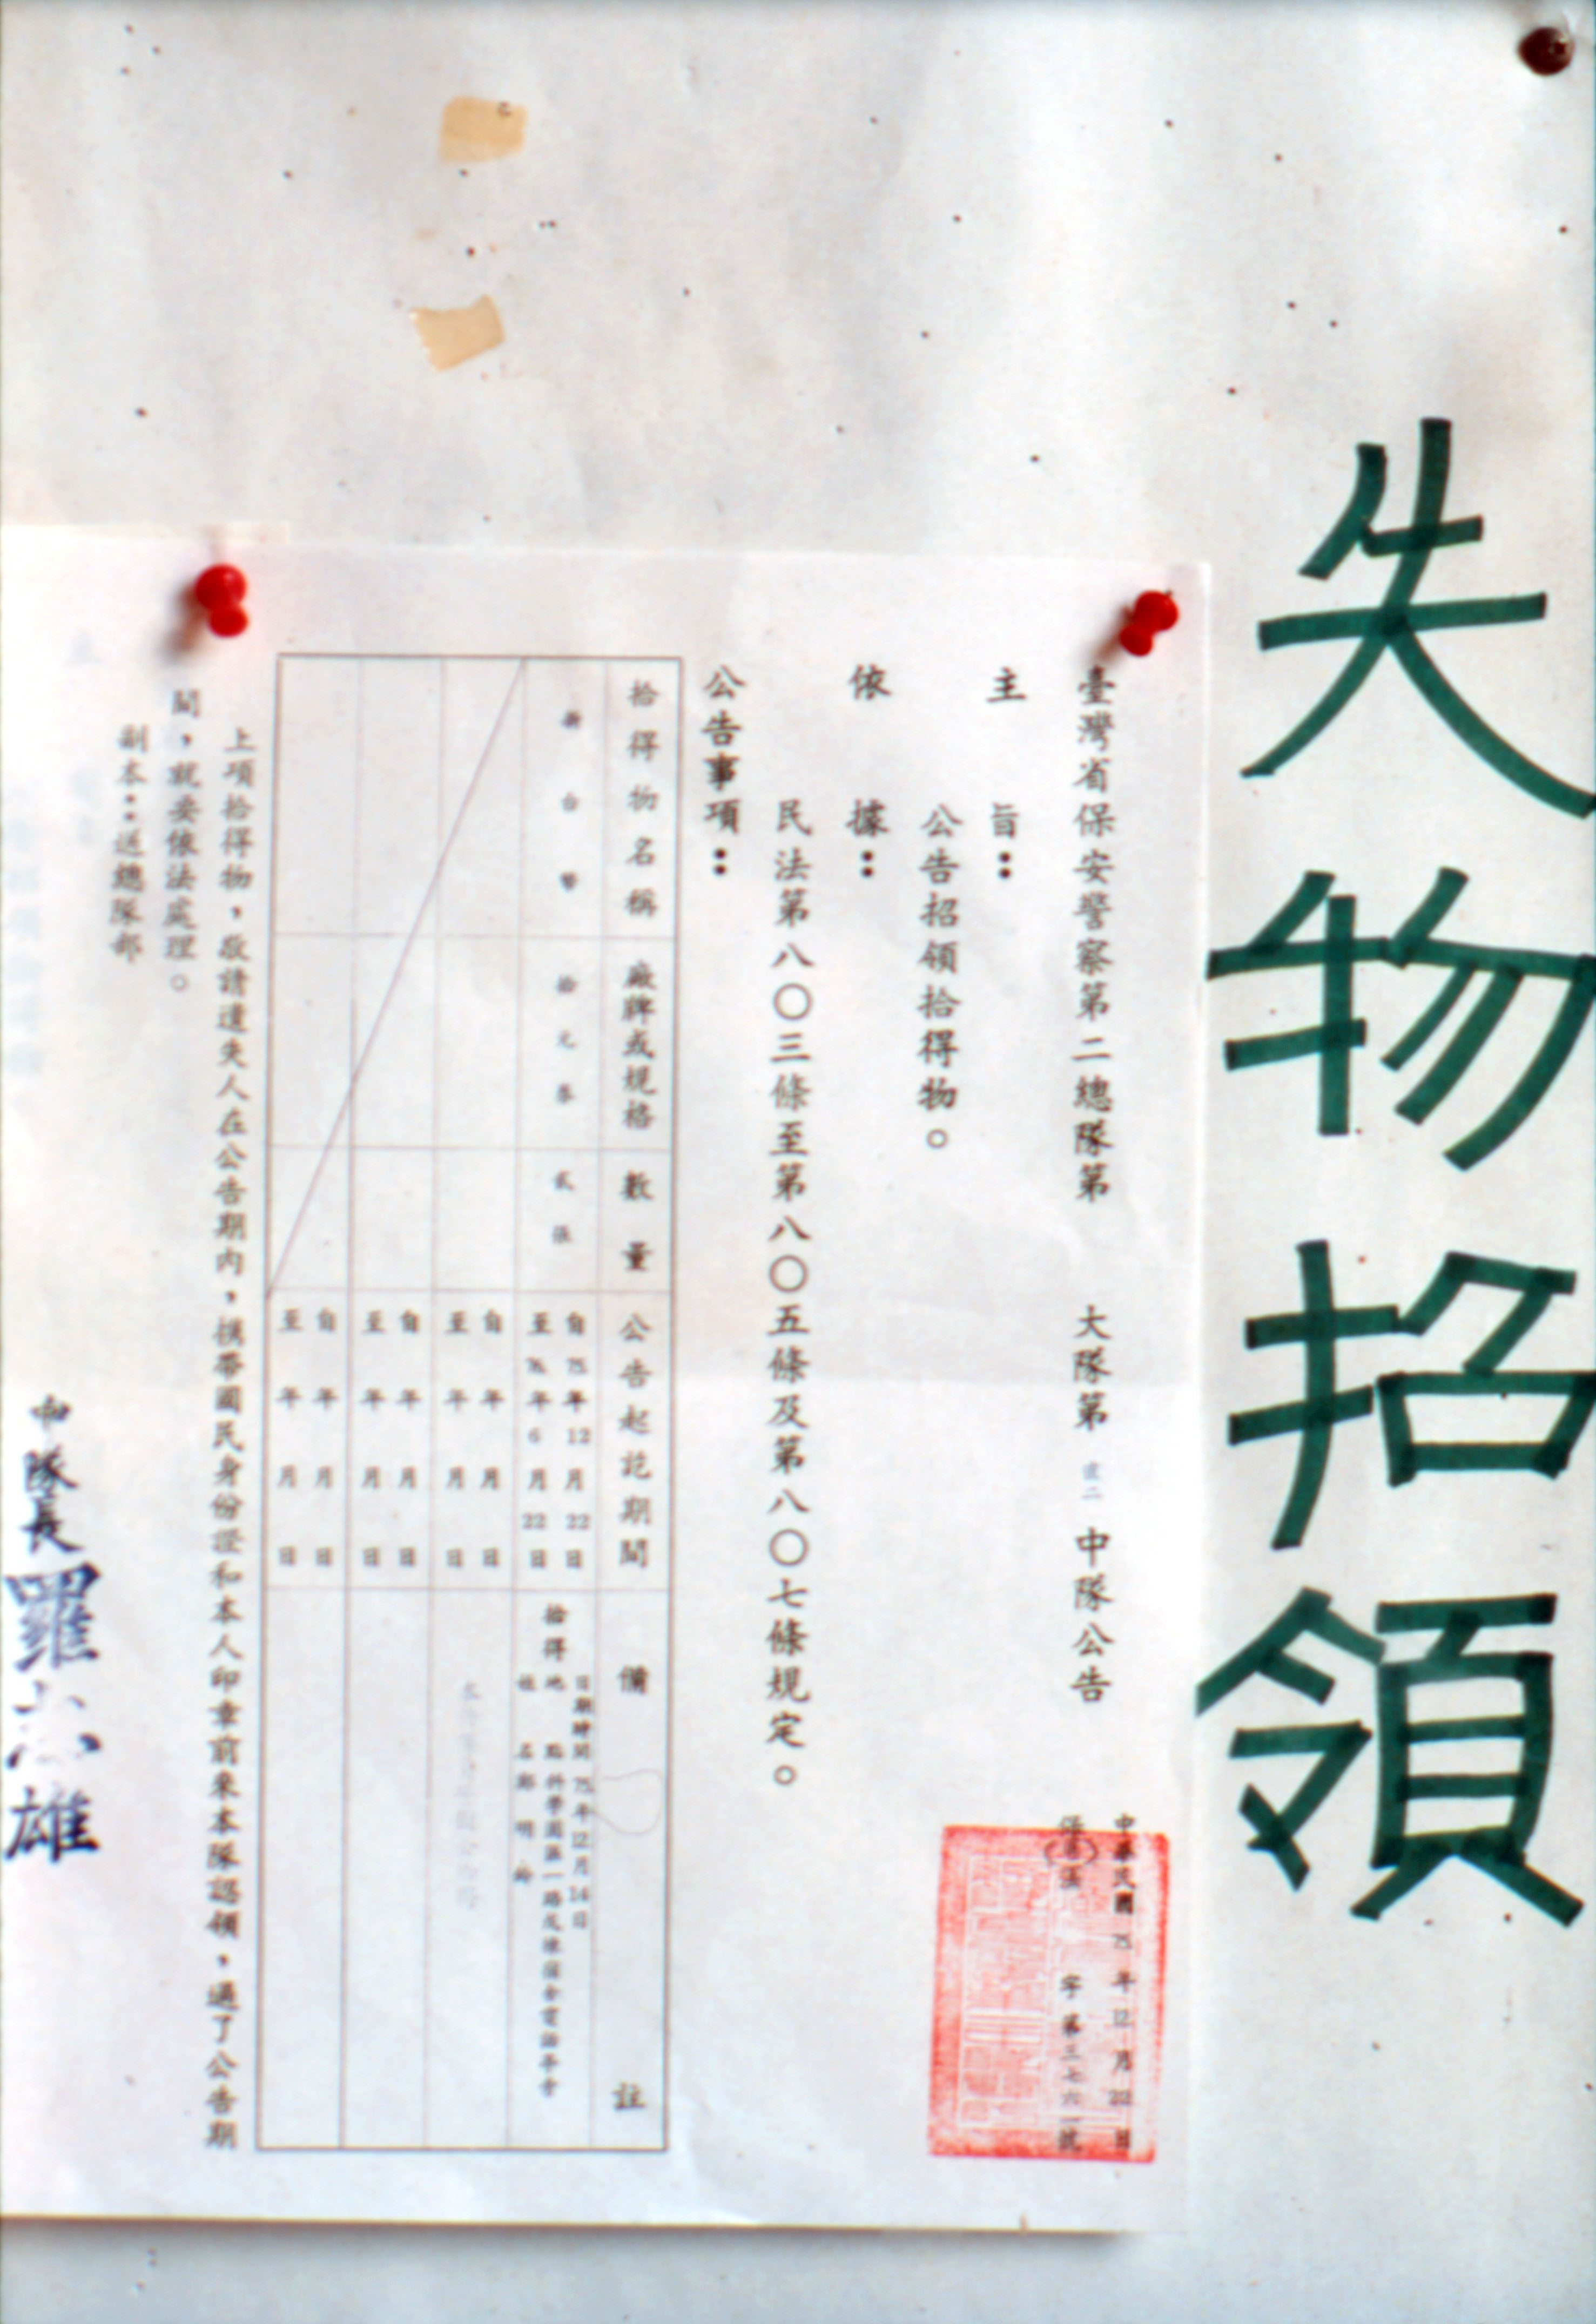 失物招領
中華民國75年12月22日
字第三七六一號
臺灣省保安警察第二總隊第 大隊第 直二 中隊公告
主旨：
公告招領拾得物。
依據：
民法第八〇三條至第八〇五條及第八〇七條規定。
公告事項：
拾得物名稱 廠牌或規格 數量 公告起訖期間 備註
新台幣 拾元券 貳張 自75年12月22日 至76年6月22日
拾得
日期時間 75年12月14日
地點 科學園區一路
姓名 鄭明
自 年 月 日
至 年 月 日
自 年 月 日
至 年 月 日
自 年 月 日
至 年 月 日
上項拾得物，敬請遺失人在公告期內，携帶國民身份證和本人印章前來本隊認領，過了公告期
間，就要依法處理。
副本：送總隊部
中隊長 羅 雄